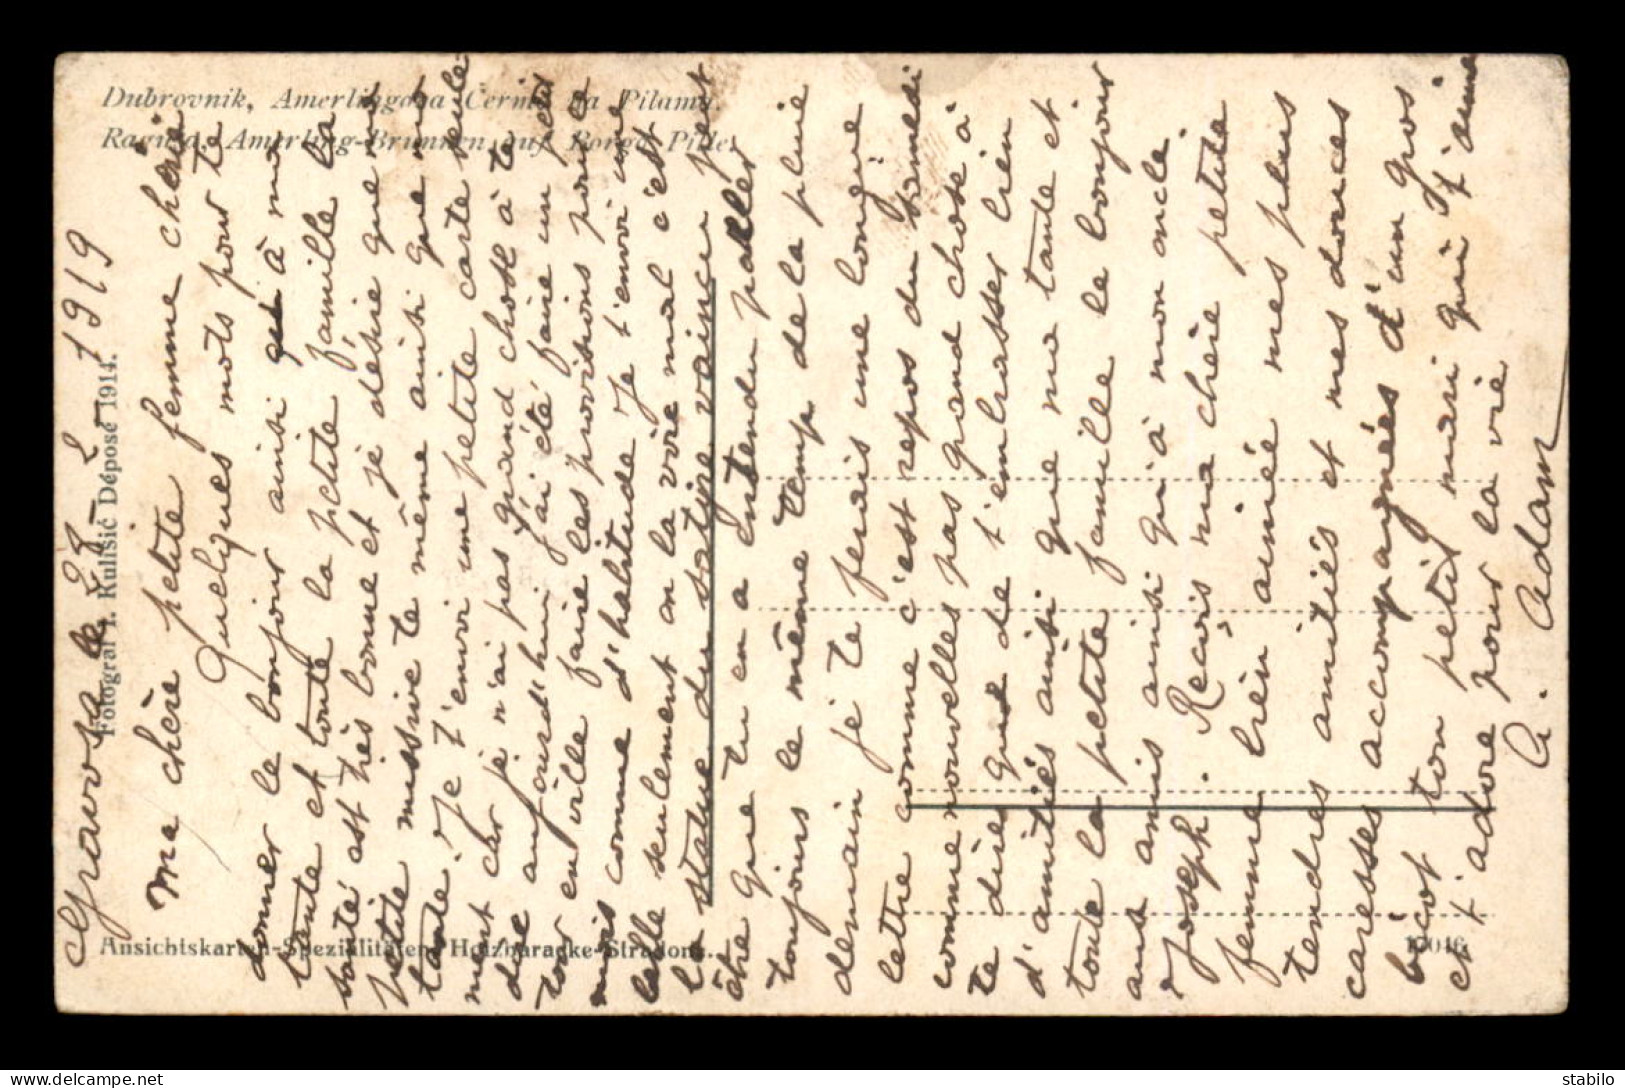 Dubrovnik, Amerlingova Česma na Pilama.
Ragusa, Amerling-Brunnen auf Borgo Pille.
Fotograf T. Kulišić Déposé 1914.
Ansichtskarten-Spezialitäten Holzbaracke-Stradone.
Gravosa le 1919
Ma chère petite femme chérie
Quelques mots pour te
donner le bonjour ainsi qu à ma
tante et toute la petite famille la
santé est très bonne et je désire que ma
petite missive te même ainsi que ma
tante. Je t'envoi une petite carte seule
ment car je n'ai pas grand chose à te
dire aujourd'hui j'ai été faire un petit
tour en ville faire les provisions pour le
mois comme d'habitude Je t'envoi une
belle seulement on la voie mal c'est
la statue du satire vaincu peut
être que tu en a entendu paller
toujours le même temp de la pluie
demain je te ferais une longue
lettre comme c'est repos du samedi
comme nouvelles pas grand chose à
te dire que de t'embrasser bien
d'amitiés ainsi que ma tante et
toute la petite famille le bonjour
aux amis ainsi qu'à mon oncle
Joseph. Reçois ma chère petite
femme bien aimée mes plus
tendres amitiés et mes douces
caresses accompagnées d'un gros
bécot ton petit mari qui t'aime
et t'adore pour la vie
A. Adam
stabilo